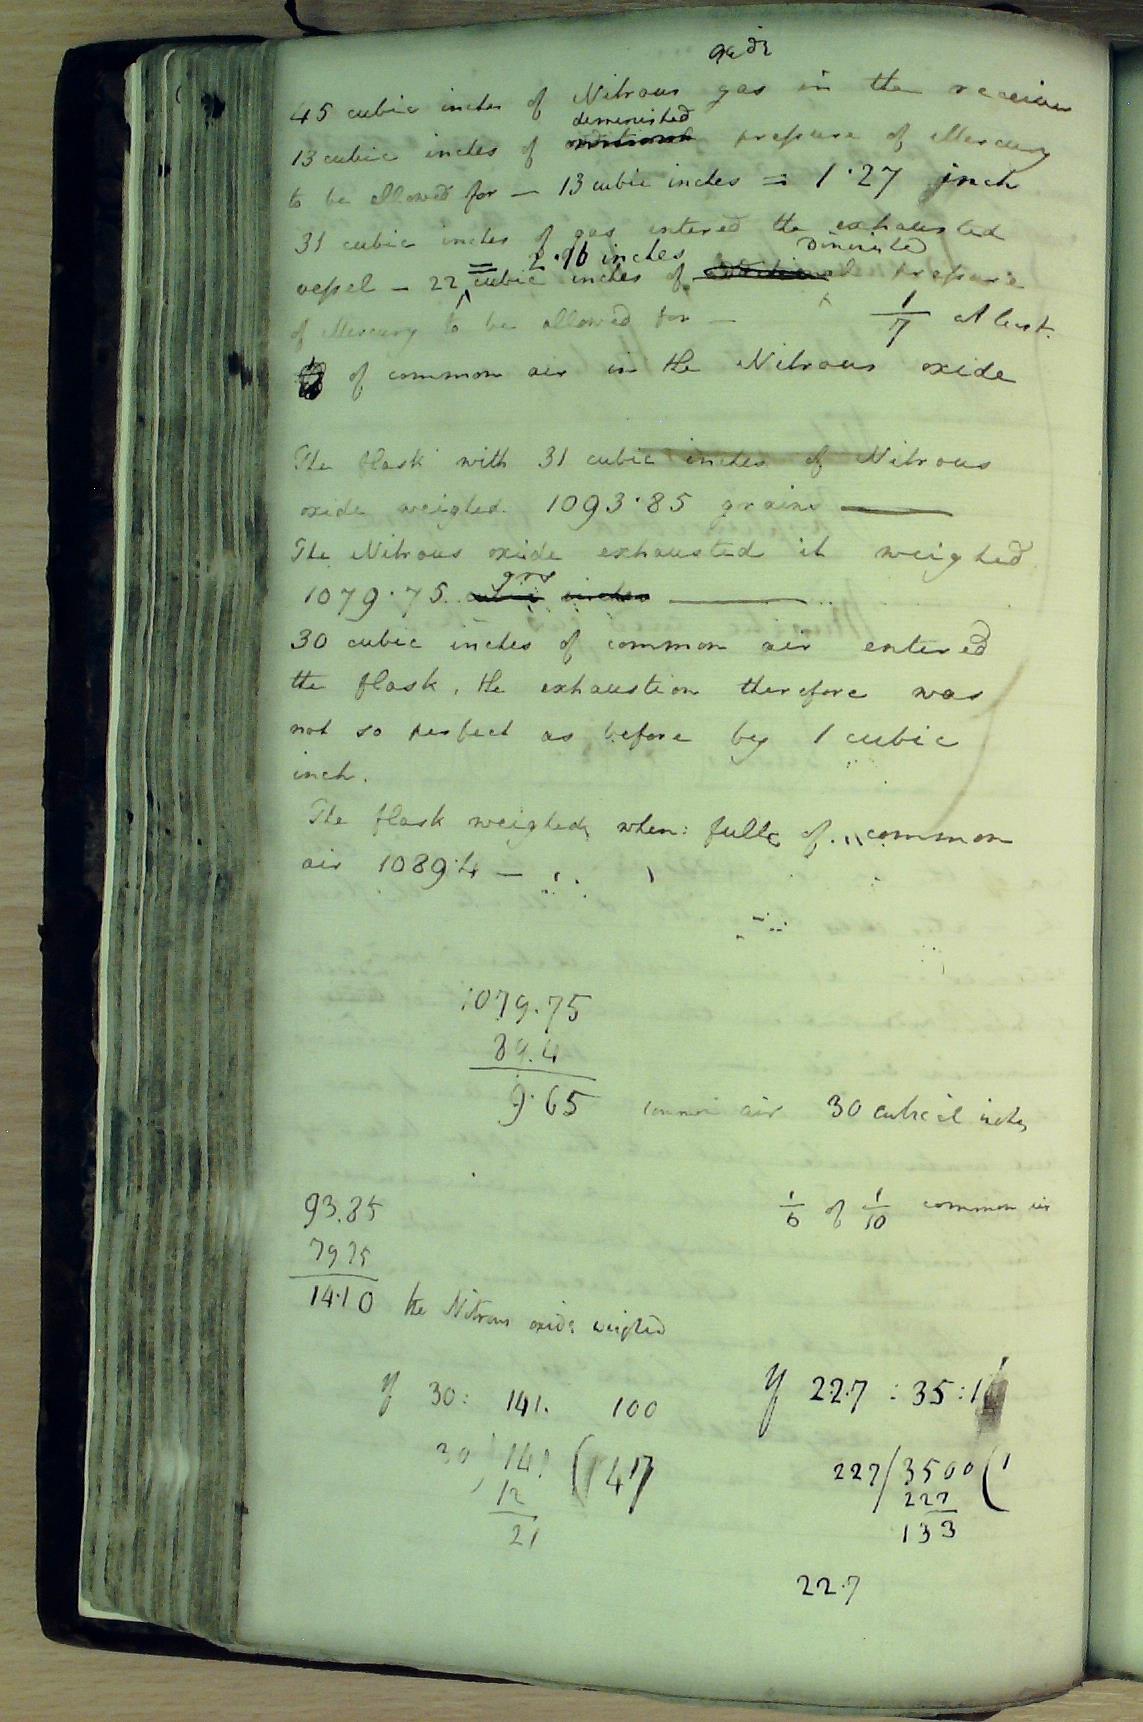 oxide
45 cubic inches of Nitrous gas in the receiver
diminished
13 cubic inches of additional pressure of Mercury
to be allowed for — 13 cubic inches = 1·27 inch
31 cubic inches of gas entered the exhausted
= 2.16 inches Diminished
vessel — 22 cubic inches of additional pressure
of Mercury to be allowed for — 1/7 at least
of common air in the Nitrous oxide
The flask with 31 cubic inches of Nitrous
oxide weighed 1093·85 grains —
The Nitrous oxide exhausted it weighed
grs
1079·75 cubic inches —
30 cubic inches of common air entered
the flask, the exhaustion therefore was
not so perfect as before by 1 cubic
inch.
The flask weighed, when full of common
air 1089·4 —
1079.75
89.4
9·65 common air 30 cubical inches
93.85 1/6 of 1/10 common air
79 75
14·10 the Nitrous oxide weighed
If 30: 141. 100 If 22.7 : 35 : 1
30 ) 141 ( 47 227/3500(1
12 227
21 133
22.7